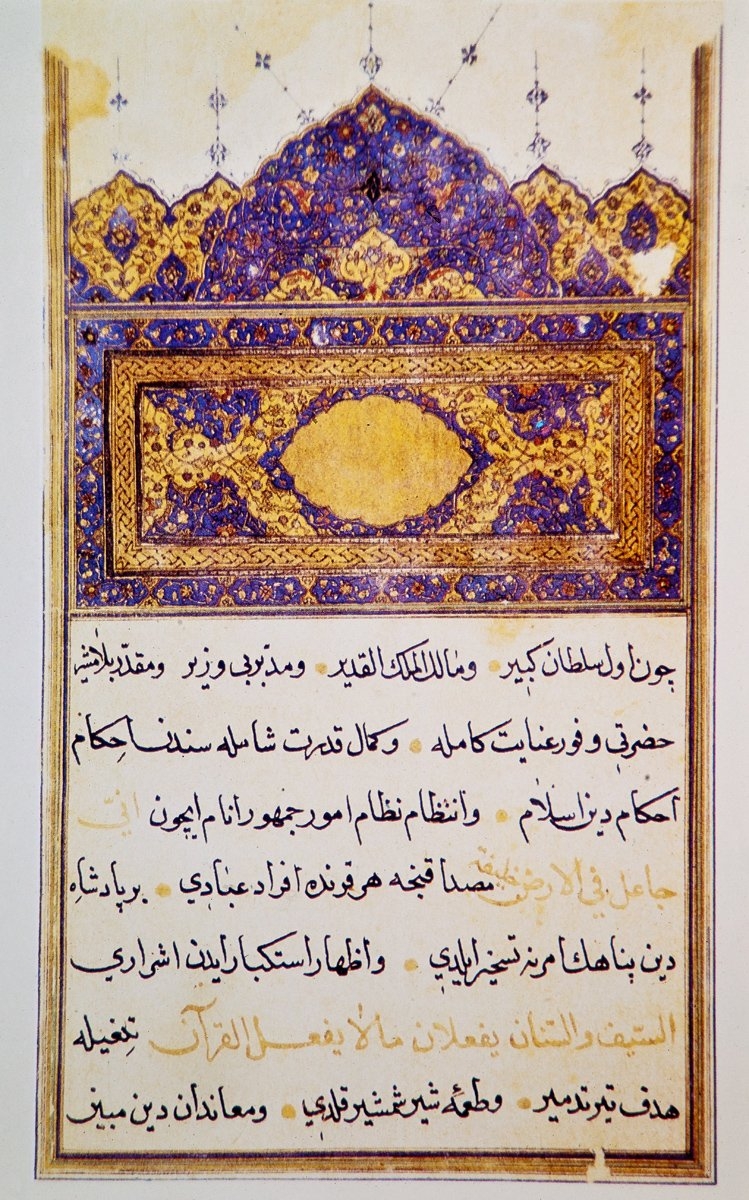 چون اول سلطان كبير ومالك الملك القدير ومدبر بى وزير ومقدر بلا مشير
حضرتى وفور عنايت كامله وكمال قدرت شامله سندن احكام
احكام دين اسلام وانتظام نظام امور جمهور انام ايچون انّى
جاعل في الارض خليفة مصداقنجه هر قرنده افراد عبادي بر پادشاه
دين پناهك امرنه تسخير ايلدي واظهار استكبار ايدن اشراري
السيف والسنان يفعلان مالا يفعل القرآن تيغيله
هدف تير تدمير وطعمهٔ شير شمشير قلدي ومعاندان دين مبين